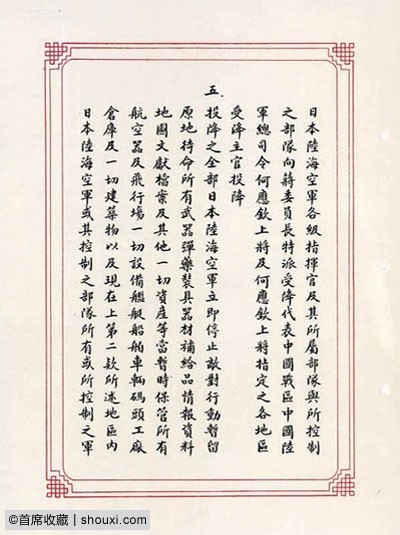 日本陸海空軍各級指揮官及其所屬部隊與所控制
之部隊向蔣委員長特派受降代表中國戰區中國陸
軍總司令何應欽上將及何應欽上將指定之各地區
受降主官投降
五.
投降之全部日本陸海空軍立即停止敵對行動暫留
原地待命所有武器彈藥裝具器材補給品情報資料
地圖文獻檔案及其他一切資產等當暫時保管所有
航空器及飛行場一切設備艦艇船舶車輛碼頭工廠
倉庫及一切建築物以及現在上第二款所述地區內
日本陸海空軍或其控制之部隊所有或所控制之軍
©首席收藏 | shouxi.com